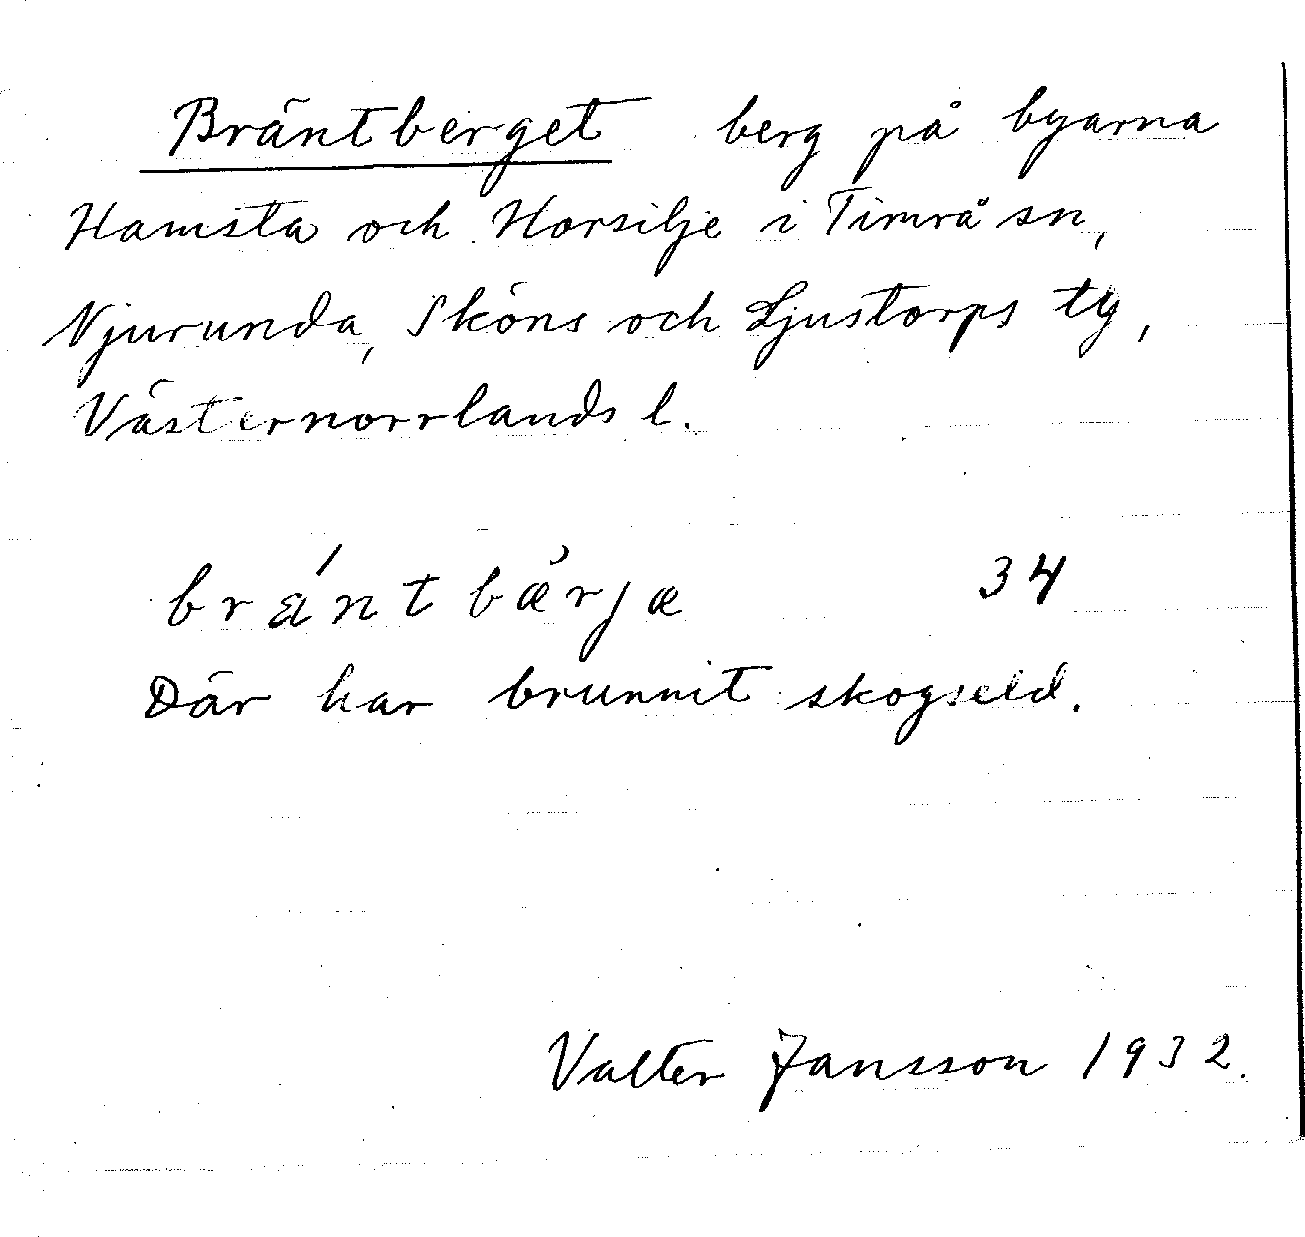 Bräntberget berg på byarna
Hamsta och Horsilje i Timrå sn,
Njurunda, Sköns och Ljustorps tg,
Västernorrlands l.
bräntbärjæ 34
Där har brunnit skogseld.
Valter Jansson 1932.